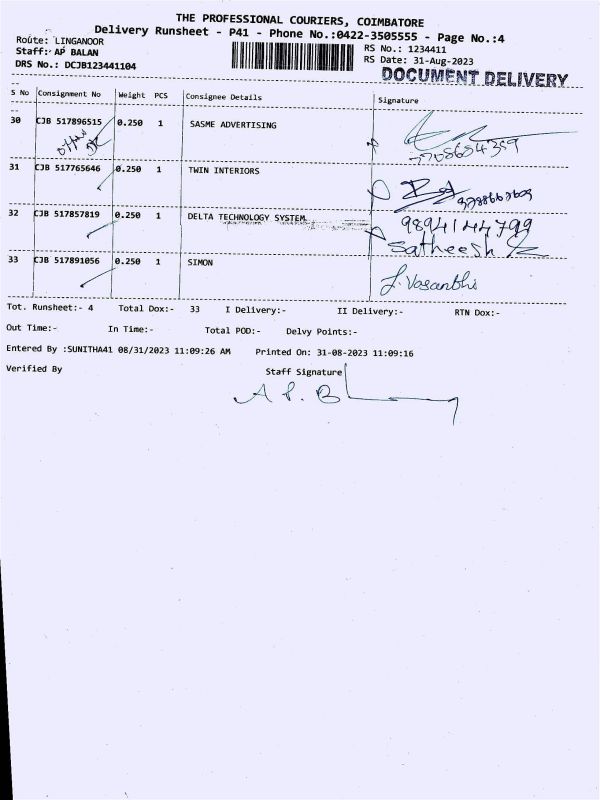 THE PROFESSIONAL COURIERS, COIMBATORE
Delivery Runsheet - P41 - Phone No.:0422-3505555 - Page No.:4
Route: LINGANOOR
RS No.: 1234411
Staff: AP BALAN
RS Date: 31-Aug-2023
DRS No.: DCJB123441104
DOCUMENT DELIVERY
S No Consignment No Weight PCS Consignee Details Signature
30 CJB 517896515 0.250 1 SASME ADVERTISING
31 CJB 517765646 0.250 1 TWIN INTERIORS
32 CJB 517857819 0.250 1 DELTA TECHNOLOGY SYSTEM
9894144799
Satheesh
33 CJB 517891056 0.250 1 SIMON
J. Vasanthi
Tot. Runsheet:- 4 Total Dox:- 33 I Delivery:- II Delivery:- RTN Dox:-
Out Time:- In Time:- Total POD:- Delvy Points:-
Entered By :SUNITHA41 08/31/2023 11:09:26 AM Printed On: 31-08-2023 11:09:16
Verified By Staff Signature
A P. B